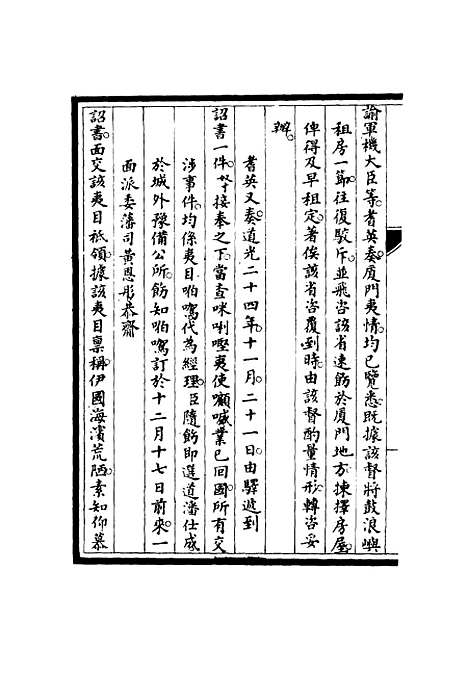 諭軍機大臣等。耆英奏厦門夷情。均已覽悉。既據該督將鼓浪嶼
租房一節。往復駁斥。並飛咨該省速飭於厦門地方揀擇房屋。
俾得及早租定。著俟該省咨覆到時。由該督酌量情形。轉咨妥
辦。
耆英又奏。道光二十四年十一月二十一日。由驛遞到
詔書一件。等接奉之下。當查咪唎㗸夷使顧盛業已回國。所有交
涉事件。均係夷目㕷嗎代為經理。臣隨飭即選道潘仕成
於城外豫備公所。飭知㕷嗎訂於十二月十七日前來。一
面派委藩司黃恩彤恭齎
詔書。面交該夷目祇領。據該夷目稟稱。伊國海濱荒陋。素知仰慕